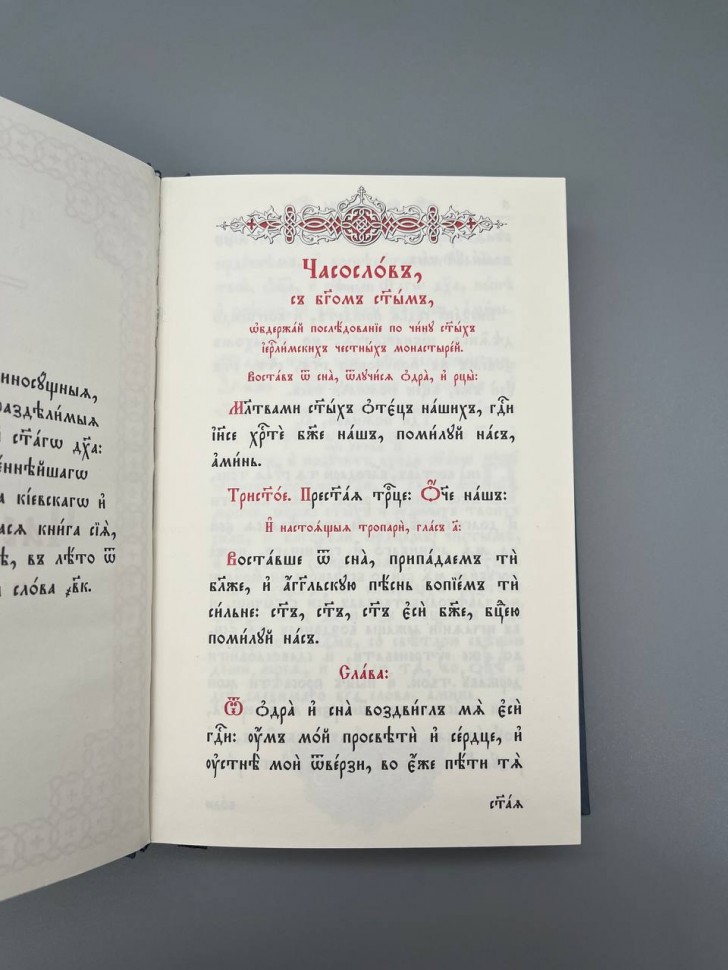 нносꙋщныѧ,
раздѣлимыѧ
й ст҃а́гѡ дх҃а:
е́ннѣйшагѡ
а кі́евскагѡ и҆
асѧ кни́га сїѧ̀,
ѣ, въ лѣ́то ѿ
сло́ва ҂вк.
Часосло́въ,
съ бг҃омъ ст҃ы́мъ,
ѡ҆бдержа́й послѣ́дованїе по чи́нꙋ ст҃ы́хъ
і҆ерⷭ҇ли́мскихъ честны́хъ монастыре́й.
Воста́въ ѿ сна̀, ѿлꙋчи́сѧ ѻ҆дра̀, и҆ рцы̀:
Мл҃твами ст҃ы́хъ ѻ҆тє́цъ на́шихъ, гдⷭ҇и
і҆и҃се хрⷭ҇тѐ бж҃е на́шъ, поми́лꙋй на́съ,
а҆ми́нь.
Трист҃о́е. Прест҃а́ѧ трⷪ҇це: Ѻ҆́че на́шъ:
И҆ настоѧ́щыѧ тропари̑, гла́съ а҃:
Воста́вше ѿ сна̀, припа́даемъ тѝ
бл҃же, и҆ а҆́гг҃льскꙋю пѣ́снь вопїе́мъ тѝ
си́льне: ст҃ъ, ст҃ъ, ст҃ъ є҆сѝ бж҃е, бцⷣею
поми́лꙋй на́съ.
Сла́ва:
Ѿ ѻ҆дра̀ и҆ сна̀ воздви́глъ мѧ̀ є҆сѝ
гдⷭ҇и: ᲂу҆́мъ мо́й просвѣтѝ и҆ се́рдце, и҆
ᲂу҆стнѣ̀ моѝ ѿве́рзи, во є҆́же пѣ́ти тѧ̀
ст҃а́ѧ